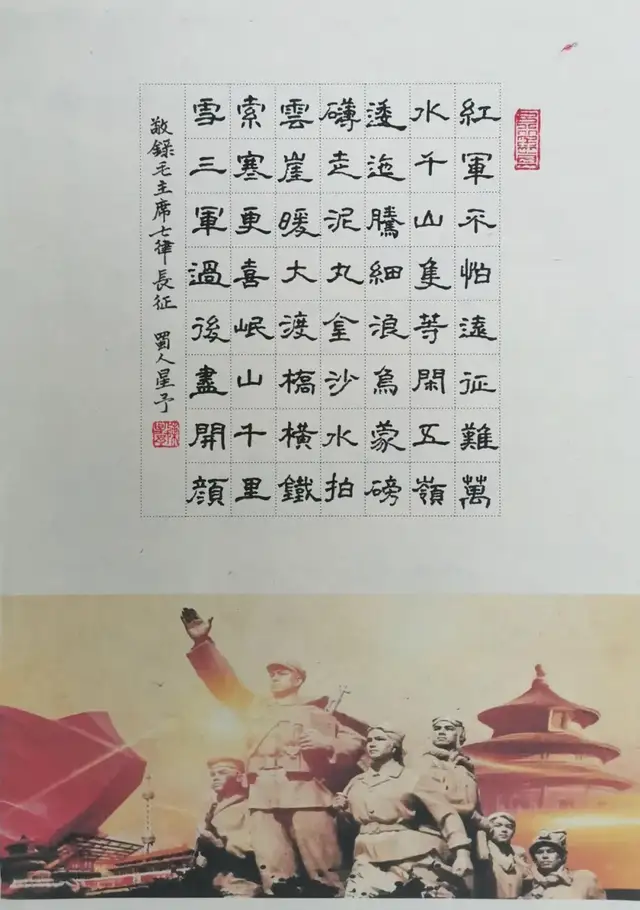 紅軍不怕遠征難萬
水千山隻等閑五嶺
逶迤騰細浪烏蒙磅
礴走泥丸金沙水拍
雲崖暖大渡橋橫鐵
索寒更喜岷山千里
雪三軍過後盡開顔
敬錄毛主席七律長征 蜀人星予